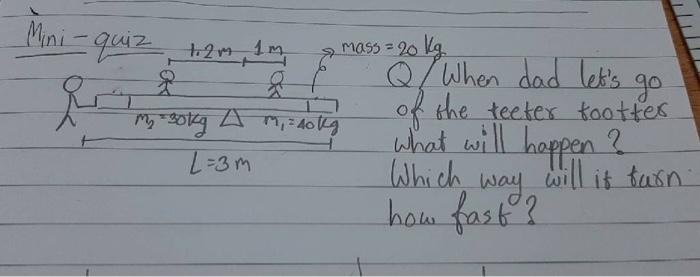 Mini-quiz
1.2m 1m
mass = 20 Kg
m₂=30kg m₁=40kg
L=3m
Q/ When dad let's go
of the teeter tootter
what will happen?
Which way will it turn
how fast?